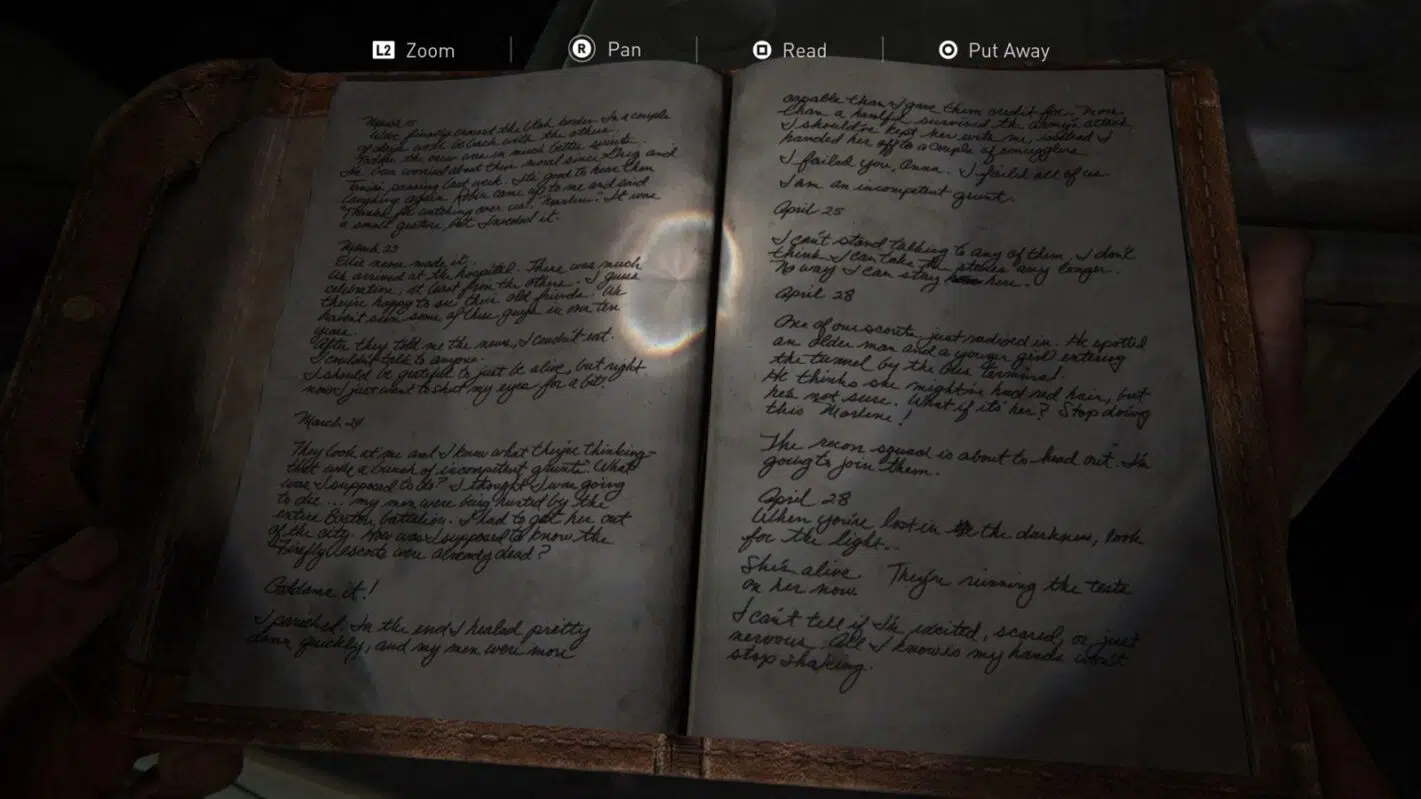 L2 Zoom
R Pan
Read
Put Away
March 15
We've finally crossed the Utah border. In a couple
of days we'll be back with the others.
Tonite the crew was in much better spirits.
I've been worried about their moral since Greg and
passing last week. It's good to hear them
laughing again. Robin came up to me and said
"Thanks for watching over us, Marlene." It was
a small gesture, but I needed it.
March 23
Ellie never made it.
We arrived at the hospital. There was much
celebration, at least from the others. I guess
they're happy to see their old friends. We
haven't seen some of these guys in over ten
years.
After they told me the news, I couldn't eat.
I couldn't talk to anyone.
I should be grateful to just be alive, but right
now I just want to shut my eyes for a bit.
March 24
They look at me and I know what they're thinking-
that we're a bunch of incompetent grunts. What
was I supposed to do? I thought I was going
to die... my men were being hunted by the
entire Boston battalion. I had to get her out
of the city. How was I supposed to know the
Firefly escorts were already dead?
Goddamn it!
I panicked. In the end I healed pretty
damn quickly, and my men were more
capable than I gave them credit for. More
than a handful survived the army's attack.
I should've kept her with me, instead I
handed her off to a couple of smugglers.
I failed you, Anna. I failed all of us.
I am an incompetent grunt.
April 25
I can't stand talking to any of them, I don't
think I can take the stares any longer.
No way I can stay here.
April 28
One of our scouts just radioed in. He spotted
an older man and a younger girl entering
the tunnel by the bus terminal.
He thinks she might've had red hair, but
he's not sure. What if it's her? Stop doing
this Marlene!
The recon squad is about to head out. I'm
going to join them.
April 28
When you're lost in the darkness, look
for the light...
She's alive. They're running the tests
on her now.
I can't tell if I'm excited, scared, or just
nervous. All I know is my hands won't
stop shaking.